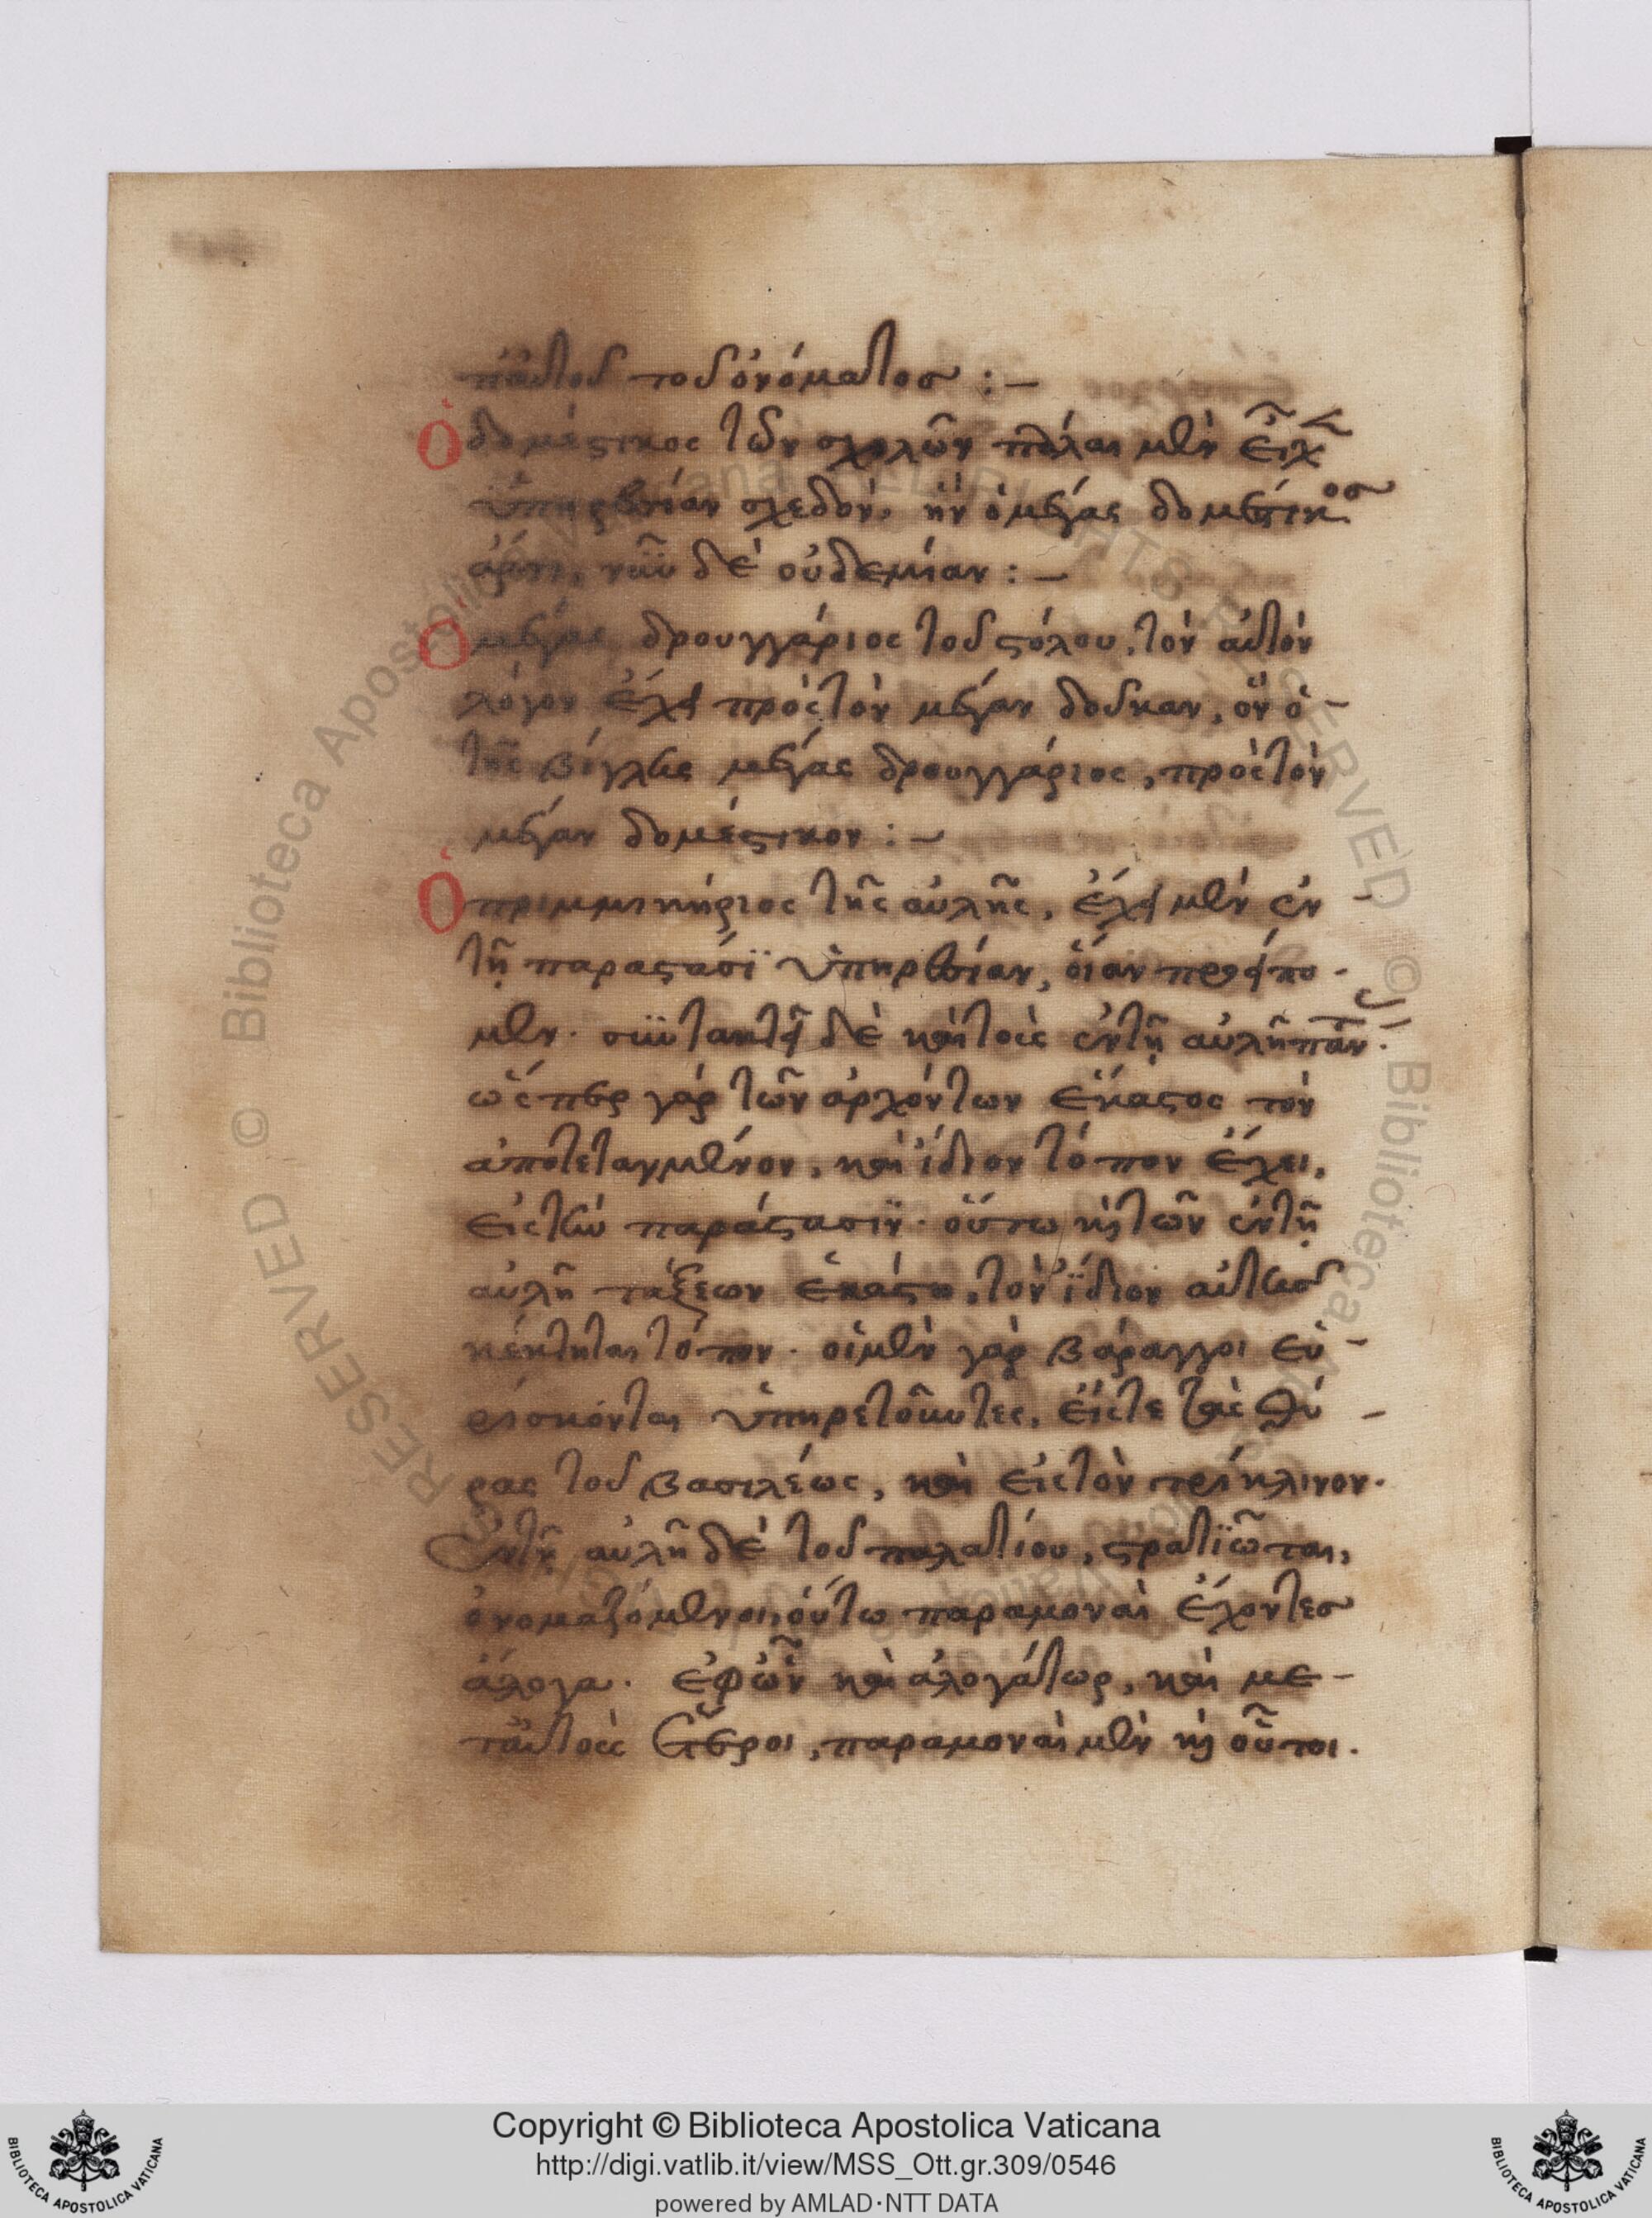 ταυτοῦ τοῦ ὀνόματος :—
Ὁ δομέστικος τῶν σχολῶν πάλαι μὲν εἶχεν
ὑπηρεσίαν σχεδόν, ἣν ὁ μέγας δομέστικος
ἄρτι, νῦν δὲ οὐδεμίαν :—
Ὁ μέγας δρουγγάριος τοῦ στόλου, τὸν αὐτὸν
λόγον ἔχει πρὸς τὸν μέγαν δοῦκαν, ὃν ὁ —
τῆς βίγλης μέγας δρουγγάριος, πρὸς τὸν
μέγαν δομέστικον :—
Ὁ πριμμικήριος τῆς αὐλῆς, ἔχει μὲν ἐν
τῇ παραστάσϊ ὑπηρεσίαν, οἵαν προείπο-
μεν. συντακτεῖ δὲ καὶ τοὺς ἐν τῇ αὐλῇ πάντας.
ὥσπερ γὰρ τῶν ἀρχόντων ἕκαστος τὸν
ἀποτεταγμένον, καὶ ἴδιον τόπον ἔχει,
εἰς τὴν παράστασϊν. οὕτω καὶ τῶν ἐν τῇ
αὐλῇ τάξεων ἑκάστη, τὸν ἴδιον αὐτῆς
κέκτηται τόπον. οἱ μὲν γὰρ βάραγγοι εὑ-
ρίσκονται ὑπηρετοῦντες, εἴς τε τὰς θύ-
ρας τοῦ βασιλέως, καὶ εἰς τὸν τρίκλινον.
Ἐν τῇ αὐλῇ δὲ τοῦ παλατίου, στρατϊῶται,
ὀνομαζόμενοι οὕτω παραμοναὶ ἔχοντες
ἄλογα. ἐφ' ὧν καὶ ἀλογάτωρ, καὶ με-
τ' αὐτοὺς ἕτεροι, παραμοναὶ μὲν καὶ οὗτοι.
Copyright © Biblioteca Apostolica Vaticana
http://digi.vatlib.it/view/MSS_Ott.gr.309/0546
powered by AMLAD·NTT DATA